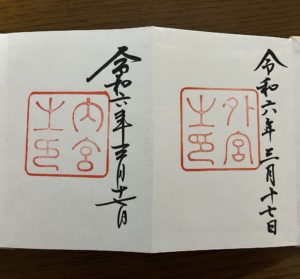 令和六年三月十七日
外宮
之印
令和六年三月十七日
内宮
之印